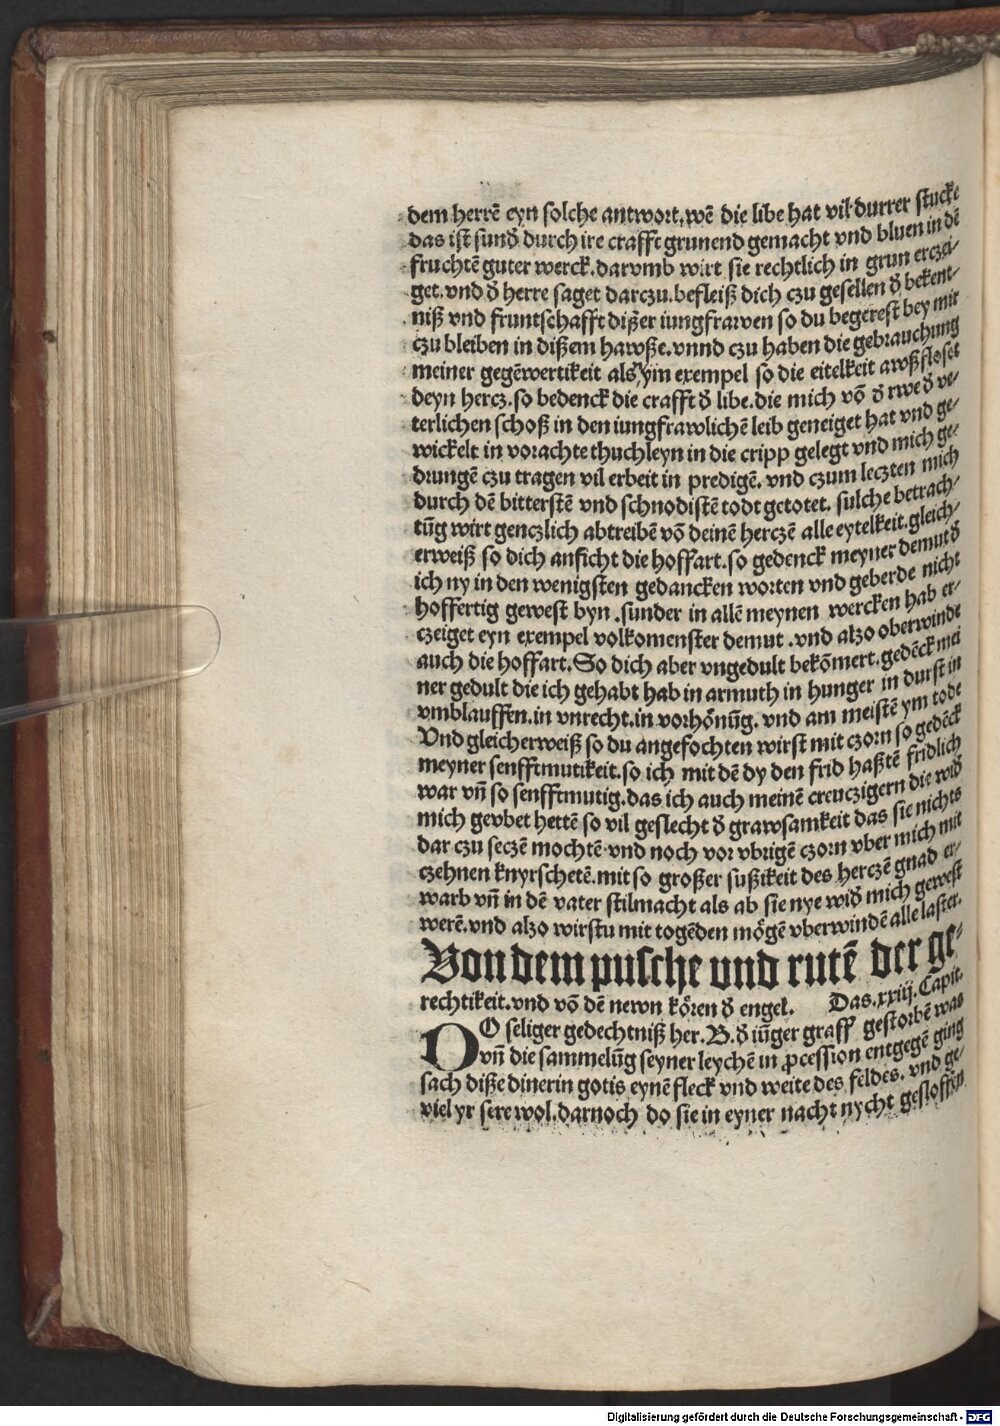 dem herrē eyn solche antwort. wē die libe hat vil durrer stucke
das ist sund durch ire crafft grunend gemacht vnd bluen in dē
fruchtē guter werck. darvmb wirt sie rechtlich in grun erczei⸗
get. vnd d̄ herre saget darczu. befleiß dich czu gesellen d̄ bekent⸗
niß vnd fruntschafft dißer iungfrawen so du begerest bey mir
czu bleiben in dißem hawße. vnnd czu haben die gebrauchung
meiner gegēwertikeit als ym exempel so die eitelkeit awßsloset
deyn hercz. so bedenck die crafft d̄ libe. die mich vō d̄ rwe d̄ ve⸗
terlichen schoß in den iungfrawlichē leib geneiget hat vnd ge⸗
wickelt in vorachte thuchleyn in die cripp gelegt vnd mich ge⸗
drungē czu tragen vil erbeit in predigē. vnd czum leczten mich
durch dē bitterstē vnd schnodistē todt getotet. sulche betrach⸗
tūg wirt genczlich abtreibē vō deinē herczē alle eytelkeit. gleich⸗
erweiß so dich anficht die hoffart. so gedenck meyner demut d̄
ich ny in den wenigsten gedancken worten vnd geberde nicht
hoffertig gewest byn. sunder in allē meynen wercken hab er⸗
czeiget eyn exempel volkomenster demut. vnd alzo oberwinde
auch die hoffart. So dich aber vngedult bekōmert. gedēck mei
ner gedult die ich gehabt hab in armuth in hunger in durst in
vmblauffen. in vnrecht. in vorhönūg. vnd am meistē ym tode
Vnd gleicherweiß so du angefochten wirst mit czorn so gedēck
meyner senfftmutikeit. so ich mit dē dy den frid haßtē fridlich
war vn̄ so senfftmutig. das ich auch meinē creuczigern die wid̄
mich gevbet hettē so vil geslecht d̄ grawsamkeit das sie nichts
dar czu seczē mochtē. vnd noch vor vbrigē czorn vber mich mit
czehnen knyrschetē. mit so großer sußikeit des herczē gnad er⸗
warb vn̄ in dē vater stilmacht als ab sie nye wid̄ mich gewest
werē. vnd alzo wirstu mit togēden mögē vberwindē alle laster.
Von dem pusche vnd rutē der ge⸗
rechtikeit. vnd vō dē newn kören d̄ engel. Das. xxiij. Capit.
DO seliger gedechtniß her. B. d̄ iūger graff gestorbē was
vn̄ die sammelūg seyner leychē in ꝓcession entgegē ging
sach diße dinerin gotis eynē fleck vnd weite des feldes. vnd ge⸗
viel yr sere wol. darnoch do sie in eyner nacht nycht gesloffen
Digitalisierung gefördert durch die Deutsche Forschungsgemeinschaft - DFG